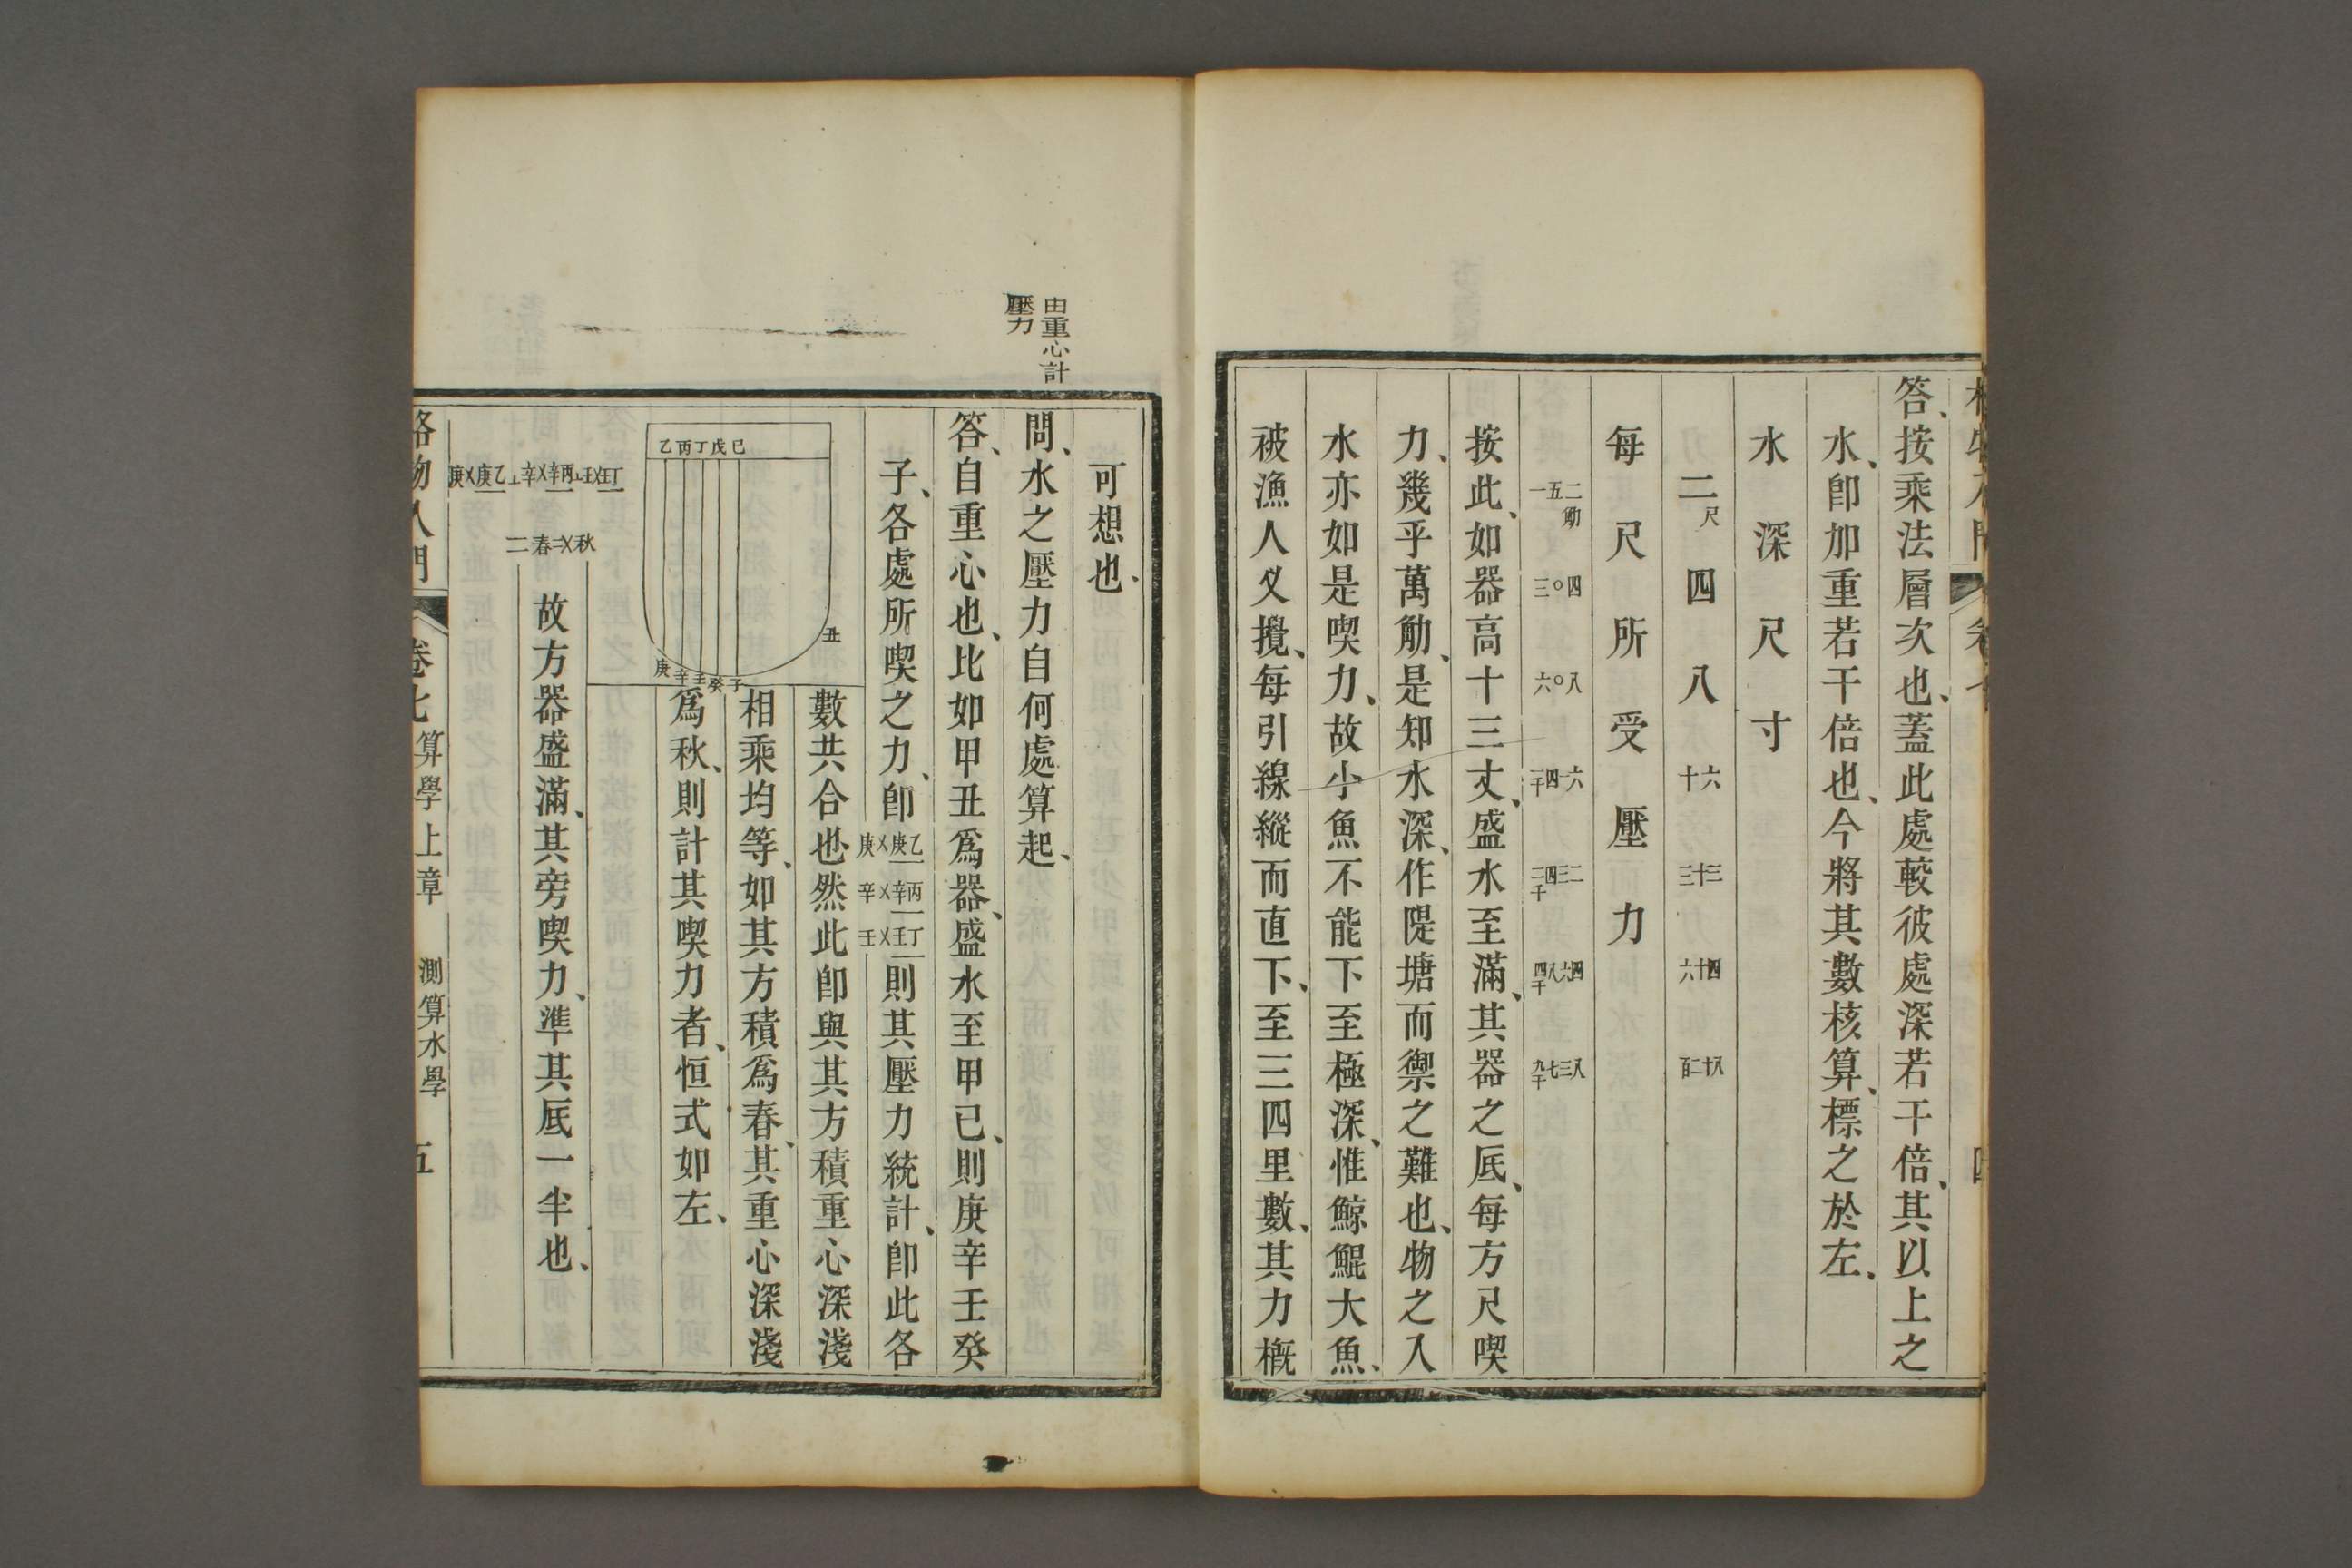 答、按乘法層次也、蓋此處較彼處深若干倍、其以上之
水、卽加重若干倍也、今將其數核算、標之於左、
水深尺寸
二尺 四 八 十六 三十三 六十四 百二十八
每尺所受壓力
一五二觔 三〇四 六〇八
按此、如器高十三丈、盛水至滿、其器之底、每方尺喫
力、幾乎萬觔、是知水深、作隄塘而禦之難也、物之入
水亦如是喫力、故小魚不能下至極深、惟鯨鯤大魚、
被漁人义攪、每引線縱而直下、至三四里數、其力槪
可想也、
由重心計
壓力
問、水之壓力自何處算起、
答、自重心也、比如甲丑爲器、盛水至甲已、則庚辛壬癸
子、各處所喫之力、卽庚乂庚乙 辛乂辛丙 壬乂壬丁則其壓力統計、卽此各
數共合也、然此卽與其方積重心深淺
相乘均等、如其方積爲春、其重心深淺
爲秋、則計其喫力者、恒式如左、
乙丙丁戊已
丑
庚辛壬癸子
庚乂庚乙⊥辛乂辛丙⊥壬乂壬丁
二春乂秋
故方器盛滿、其旁喫力、準其底一半也、
格物入門
卷七 算學上章 測算水學 五